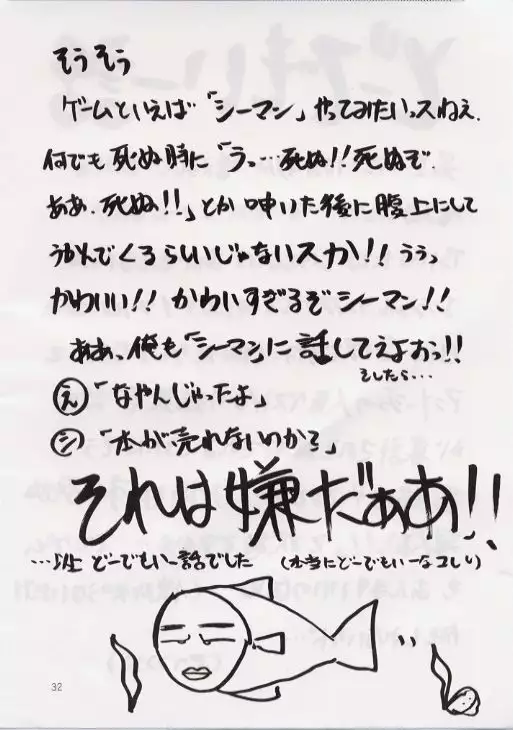 そうそう
ゲームといえば「シーマン」やってみたいっスねえ.
何でも死ぬ時に「うっ…死ぬ!!死ぬぞ.
ああ.死ぬ!!」とか呻いた後に腹上にして
うかんでくるらしいじゃないスか!!ううっ
かわいい!!かわいすぎるぞシーマン!!
ああ、俺も「シーマン」に話してえよおっ!!
そしたら…
え「なやんじゃったよ」
シ「本が売れないのかる」
それは嫌だぁああ!!
…以上 どーでもいー話でした (本当にどーでもいーなコレ)
32